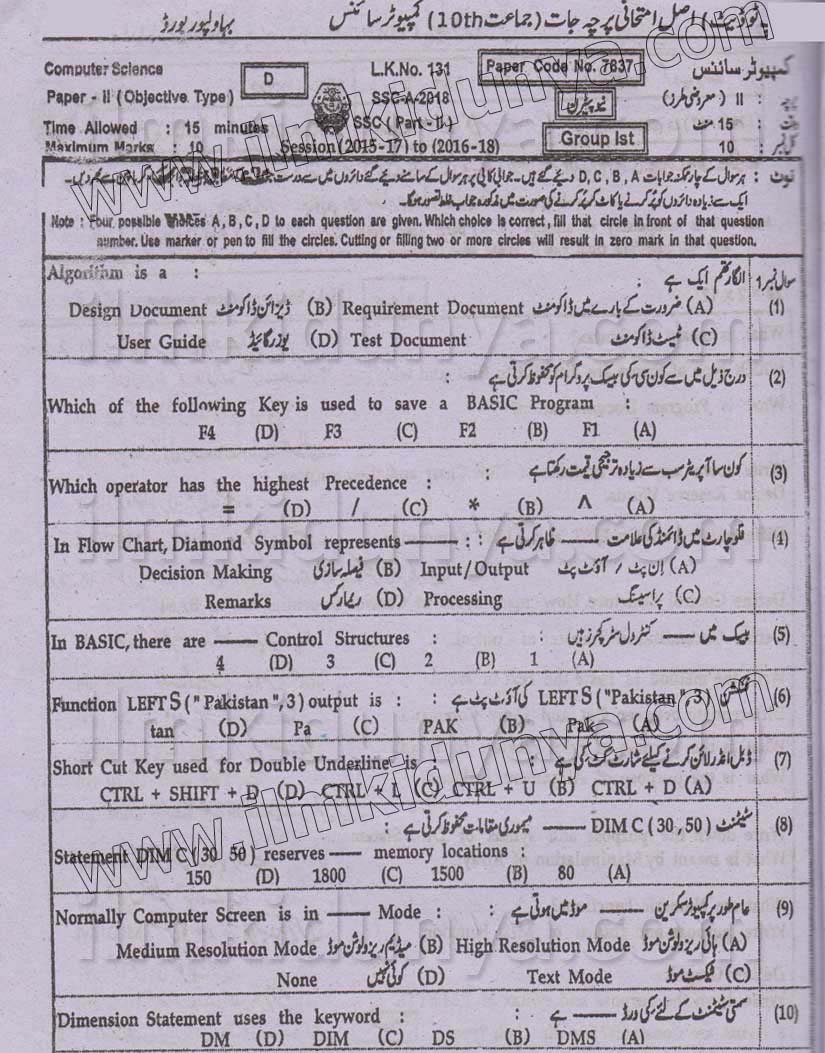 (پوٹونیٹ) اصل امتحانی پرچہ جات (جماعت 10th) کمپیوٹر سائنس بہاولپور بورڈ
Computer Science D L.K.No. 131 Paper Code No. 7637 کمپیوٹر سائنس
Paper - II (Objective Type) SSC-A-2018 نیو پیٹرن II (معروضی طرز)
Time Allowed : 15 minutes SSC (Part - II) 15 منٹ
Maximum Marks : 10 Session (2015-17) to (2016-18) Group Ist 10
نوٹ : ہر سوال کے چار ممکنہ جوابات D, C, B, A دیئے گئے ہیں۔ جوابی کاپی پر ہر سوال کے سامنے دیئے گئے دائروں میں سے درست
ایک سے زیادہ دائروں کو پُر کرنے یا کاٹ کر پُر کرنے کی صورت میں مذکورہ جواب غلط تصور ہوگا۔
Note : Four possible choices A, B, C, D to each question are given. Which choice is correct, fill that circle in front of that question
number. Use marker or pen to fill the circles. Cutting or filling two or more circles will result in zero mark in that question.
Algorithm is a : الگارتھم ایک ہے سوال نمبر 1
Design Document ڈیزائن ڈاکومنٹ (B) Requirement Document ضرورت کے بارے میں ڈاکومنٹ (A) (1)
User Guide یوزر گائیڈ (D) Test Document ٹیسٹ ڈاکومنٹ (C)
درج ذیل میں سے کون سی کی بیسک پروگرام کو محفوظ کرتی ہے : (2)
Which of the following Key is used to save a BASIC Program :
F4 (D) F3 (C) F2 (B) F1 (A)
کون سا آپریٹر سب سے زیادہ ترجیحی قیمت رکھتا ہے (3)
Which operator has the highest Precedence :
= (D) / (C) * (B) ^ (A)
In Flow Chart, Diamond Symbol represents ——— : : فلو چارٹ میں ڈائمنڈ کی علامت —— ظاہر کرتی ہے (4)
Decision Making فیصلہ سازی (B) Input/Output ان پٹ / آؤٹ پٹ (A)
Remarks ریمارکس (D) Processing پراسیسنگ (C)
In BASIC, there are —— Control Structures : : بیسک میں —— کنٹرول سٹرکچرز ہیں (5)
4 (D) 3 (C) 2 (B) 1 (A)
Function LEFTS ("Pakistan", 3) output is : : فنکشن LEFTS ("Pakistan", 3) کی آؤٹ پٹ ہے (6)
tan (D) Pa (C) PAK (B) Pak (A)
Short Cut Key used for Double Underline is : ڈبل انڈر لائن کرنے کیلئے شارٹ کٹ کی ہے (7)
CTRL + SHIFT + D (D) CTRL + L (C) CTRL + U (B) CTRL + D (A)
سٹیٹمنٹ DIM C (30, 50) —— میموری مقامات محفوظ کرتی ہے : (8)
Statement DIM C (30 50) reserves —— memory locations
150 (D) 1800 (C) 1500 (B) 80 (A)
Normally Computer Screen is in —— Mode : : عام طور پر کمپیوٹر سکرین —— موڈ میں ہوتی ہے (9)
Medium Resolution Mode میڈیم ریزولوشن موڈ (B) High Resolution Mode ہائی ریزولوشن موڈ (A)
None کوئی نہیں (D) Text Mode ٹیکسٹ موڈ (C)
Dimension Statement uses the keyword : سٹیٹمنٹ کے لئے کی ورڈ —— ہے : (10)
DM (D) DIM (C) DS (B) DMS (A)
www.ilmkidunya.com
ilmkidunya.com